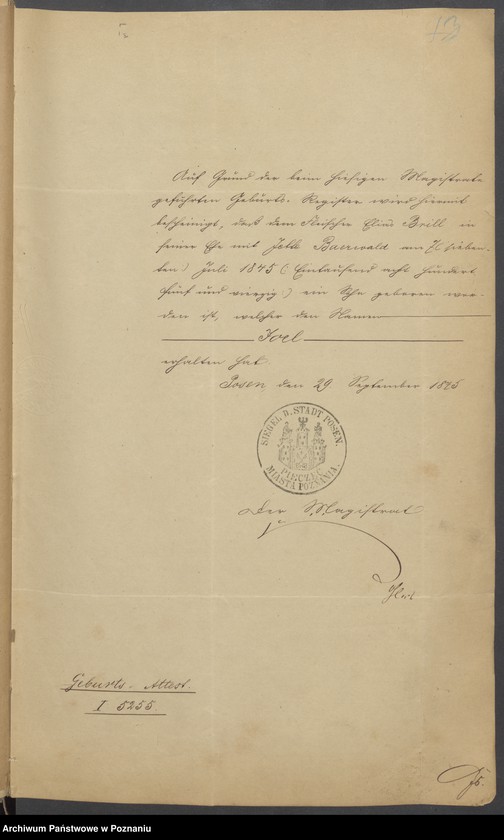 13
Auf Grund der beim hiesigen Magistrate
geführten Geburts-Register wird hiermit
bescheinigt, daß dem Fleischer Elias Brill in
seiner Ehe mit Jette Baerwald am 7 (sieben-
ten) Juli 1845 (Eintausend acht hundert
fünf und vierzig) ein Sohn geboren wor-
den ist, welcher den Namen
Joel
erhalten hat.
Posen den 29. September 1885
SIEGEL D. STADT POSEN.
PIECZĘĆ
MIASTA POZNANIA.
Der Magistrat
Geburts-Attest.
I 5255.
Archiwum Państwowe w Poznaniu